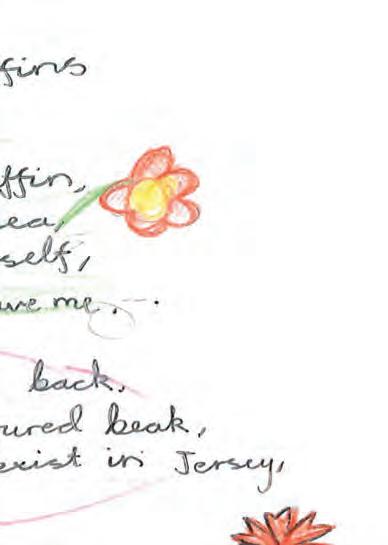 ffins
ffin,
ea,
self,
ve me.
back.
ured beak,
exist in Jersey,